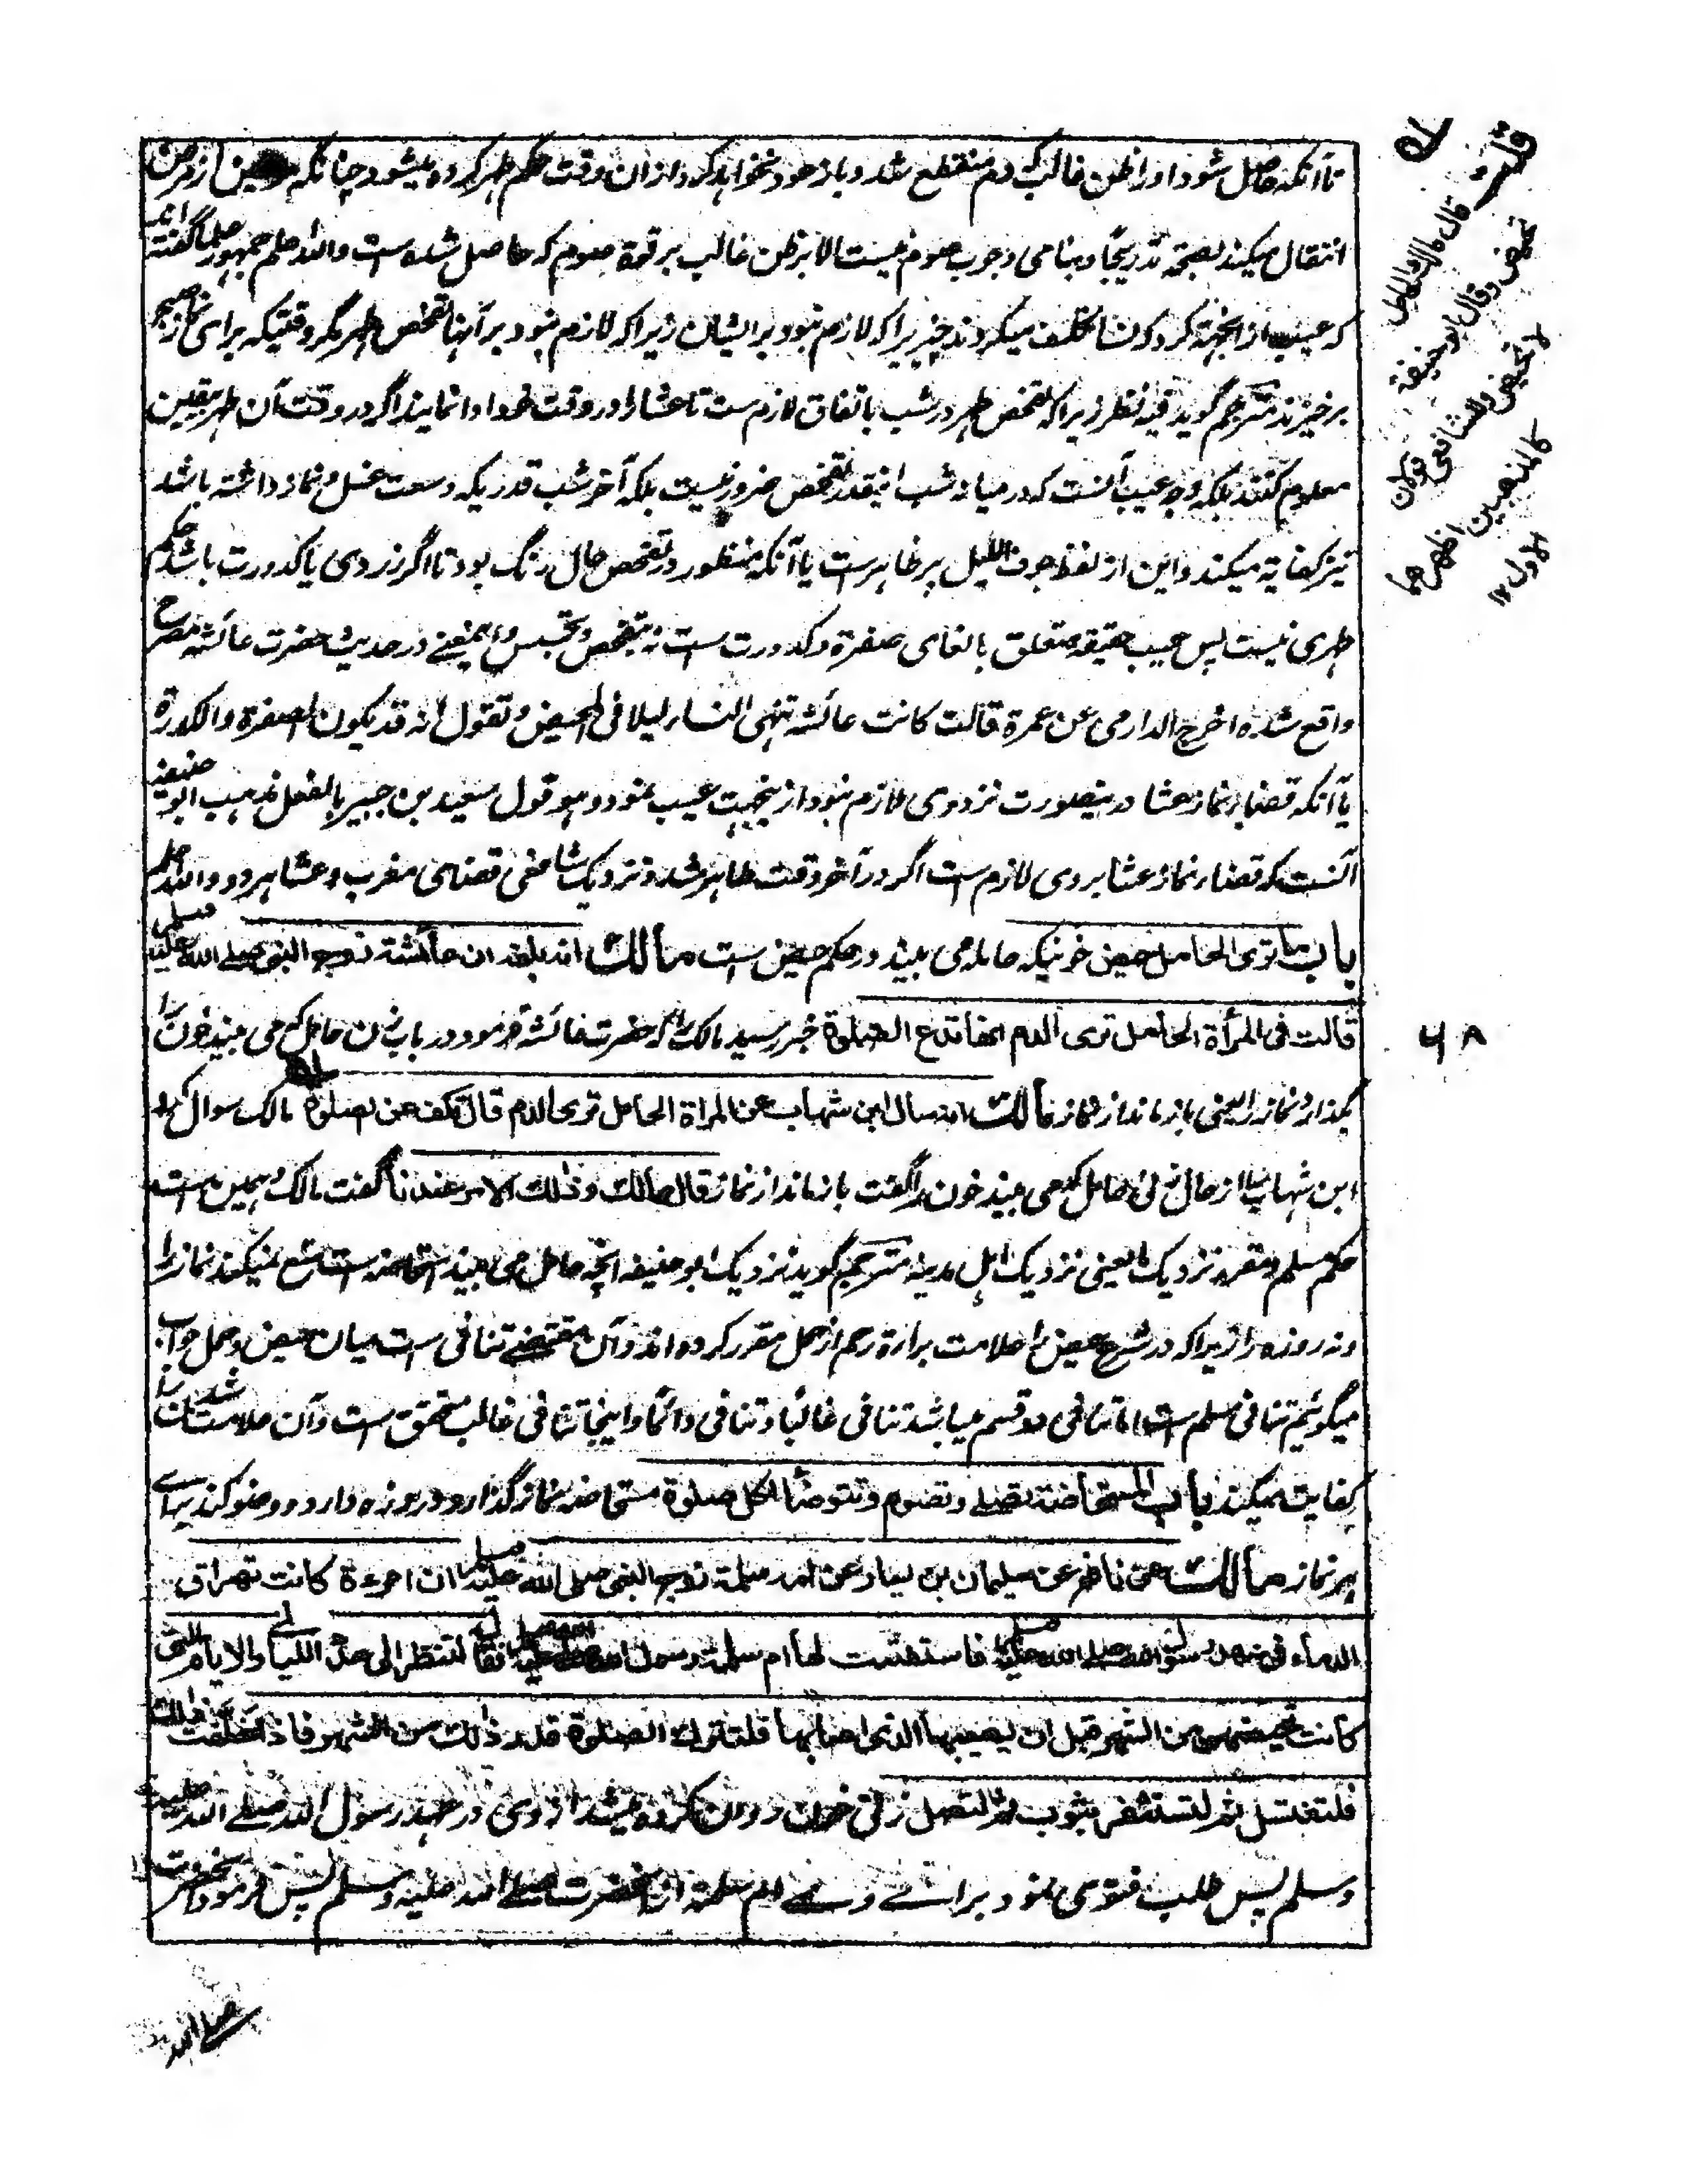 تا آنکه حاصل شود او را ظن غالب که دم منقطع شد و باز عود نخواهد کرد و از ان وقت حکم طهر کرده میشود چنانکه مریض از مرض
انتقال میکند بصحة تدریجًا و بنای وجوب صوم نیست الا بر ظن غالب بر قوة صوم که حاصل شده است والله اعلم جمهور علما گفته اند
که عیب از اینجهة کرد که زنان تکلف میکردند چیزیرا که لازم نبود بر ایشان زیرا که لازم نبود بر آنها تفحص طهر مگر وقتیکه برای نماز صبح
برخیزند مترجم گوید فیه نظر زیرا که تفحص طهر در شب باتفاق لازم ست تا عشا را در وقت خود ادا نمایند اگر در وقت آن طهر بیقین
معلوم کنند بلکه وجه عیب آنست که در میانه شب اینقدر تفحص ضرور نیست بلکه آخر شب قدریکه وسعت غسل و نماز داشته باشد
نیز کفایة میکند و این از لفظ جوف اللیل پر ظاهر ست یا آنکه منظور در تفحص حال رنگ بود تا اگر زردی یا کدورت باشد حکم
طهری نیست پس عیب حقیقة متعلق بالغای صفرة و کدورت ست نه بتفحص و تجسس و اینمعنے در حدیث حضرت عائشه مصرح
واقع شده اخرج الدارمی عن عمرة قالت کانت عائشه تنهی النساء لیلا فی الحیض و تقول انه قد یکون الصفرة والکدرة
یا آنکه قضاء نماز عشا درینصورت نزد وی لازم نبود ازینجهت عیب نمود و هو قول سعید بن جبیر بالفعل مذهب ابو حنیفه
آنست که قضاء نماز عشا بر وی لازم ست اگر در آخر وقت طاهر شد و نزدیک شافعی قضای مغرب و عشا هر دو والله اعلم
باب ما تری الحامل حیض خونیکه حامله می بیند در حکم حیض ست مالك انه بلغه ان عائشة زوج النبی صلے الله علیه وسلم
قالت فی المرأة الحامل تری الدم انها تدع الصلوة خبر رسید مالک را که حضرت عائشه فرمود در باب زن حامل که می بیند خون را
بگذارد نماز را یعنی باز ماند از نماز مالك انه سال ابن شهاب عن المراة الحامل تری الدم قال تکف عن الصلوة مالک سوال کرد
ابن شهاب را از حال زنی حامل که می بیند خون را گفت باز ماند از نماز قال مالك وذلك الامر عندنا گفت مالک و همین ست
حکم مسلم و مقرر نزدیک ما یعنی نزدیک اهل مدینه مترجم گوید نزدیک ابو حنیفه انچه حامل می بیند استحاضه ست منع نمیکند نماز را
و نه روزه را زیرا که در شرع حیض را علامت براءة رحم از حمل مقرر کرده اند و آن مقتضے تنافی ست میان حیض و حمل جواب
میگوئیم تنافی مسلم ست اما تنافی دو قسم میباشد تنافی غالبًا و تنافی دائمًا و اینجا تنافی غالب متحقق ست و آن علامت شدن را
کفایت میکند باب المستحاضة تصلے و تصوم و تتوضأ لکل صلوة مستحاضه نماز گذارد و روزه دارد و وضو کند برای
هر نماز مالك عن نافع عن سلیمان بن یسار عن ام سلمة زوج النبی صلی الله علیه وسلم ان امرءة کانت تهراق
الدماء فی عهد رسول الله صلے الله علیه وسلم فاستفتت لها أم سلمة رسول الله صلے الله علیه وسلم فقال لتنظر الی عدد اللیالی والایام التی
کانت تحیضهن من الشهر قبل ان یصیبها الذی اصابها فلتترك الصلوة قدر ذلك من الشهر فاذا خلفت ذلك
فلتغتسل ثم لتستثفر بثوب ثم لتصل زنی خون روان کرده میشد از وی در عهد رسول الله صلے الله علیه
وسلم پس طلب فتوی نمود برائے وے ام سلمة از آنحضرت صلے الله علیه وسلم پس فرمود آنحضرت
صلے الله
قلت
قال مالك الحامل
تحیض وقال ابو حنیفة
لا تحیض وللشافعی قولان
کالمذهبین اظهرهما
الاول ۱۲
۶۸